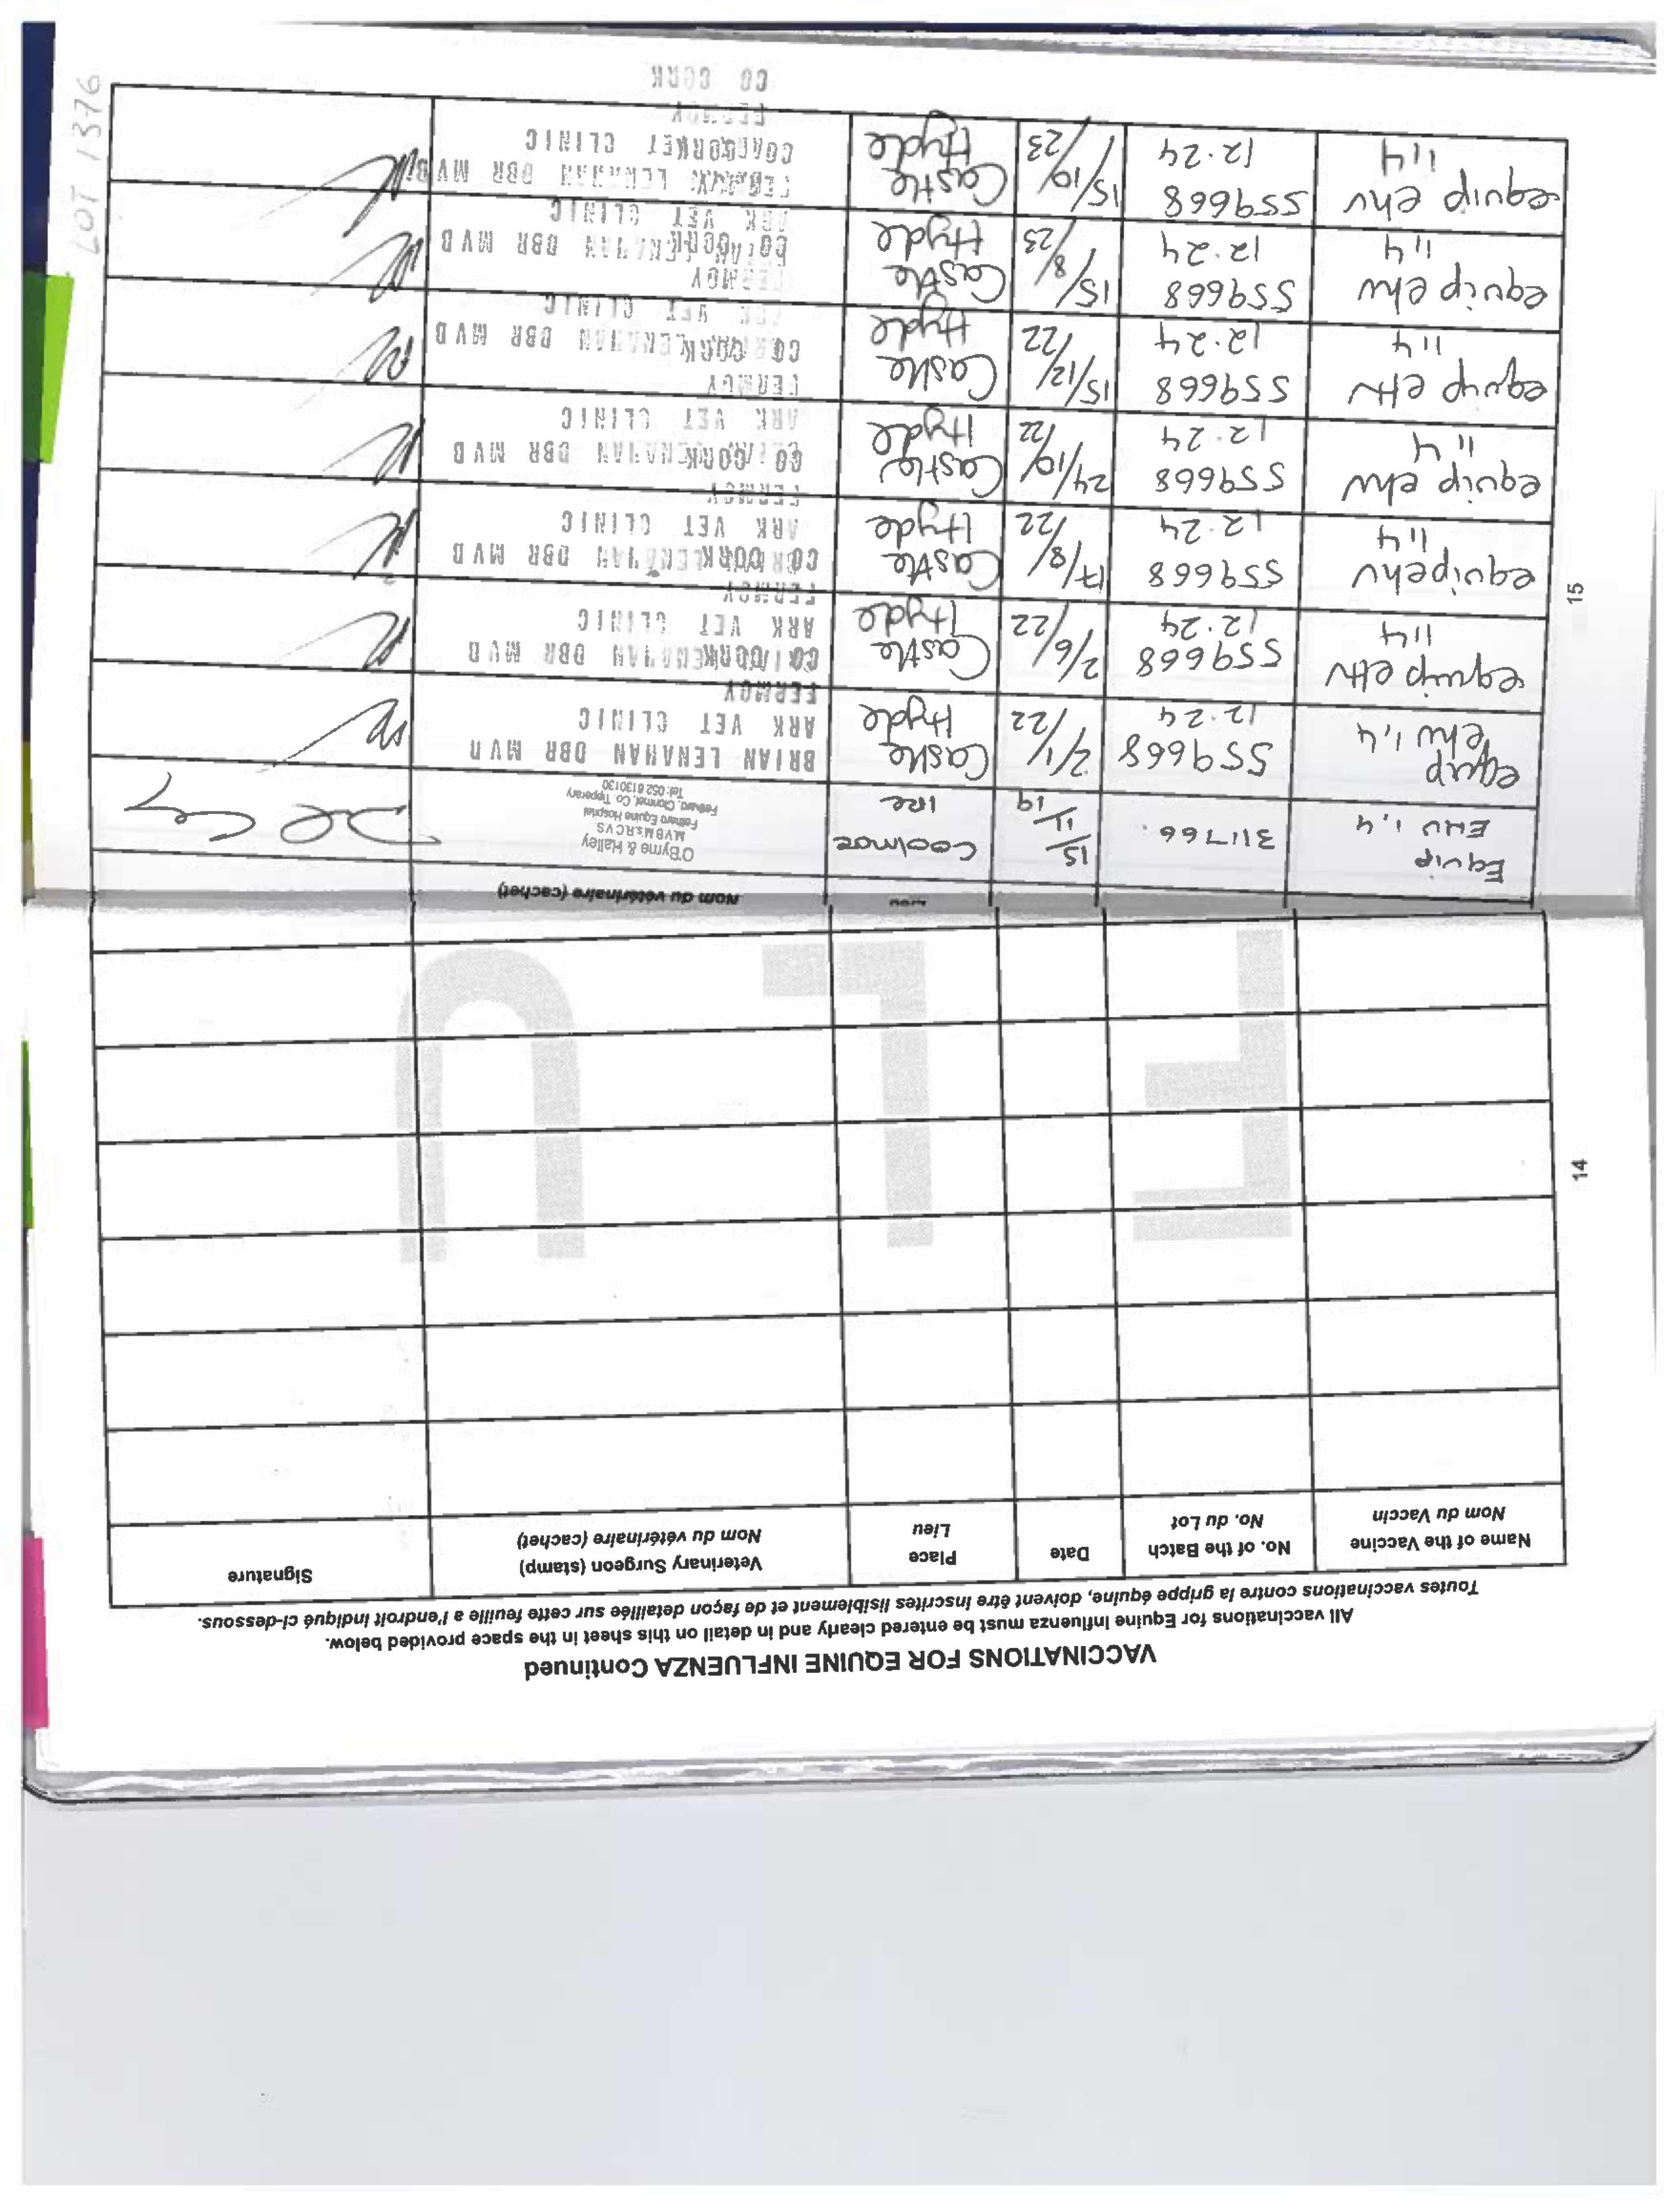 VACCINATIONS FOR EQUINE INFLUENZA Continued
All vaccinations for Equine Influenza must be entered clearly and in detail on this sheet in the space provided below.
Toutes vaccinations contre la grippe équine, doivent être inscrites lisiblement et de façon detaillée sur cette feuille a l'endroit indiqué ci-dessous.
Name of the Vaccine No. of the Batch Date Place Veterinary Surgeon (stamp) Signature
Nom du Vaccin No. du Lot Lieu Nom du vétérinaire (cachet)
FLU
14
Nom du vétérinaire (cachet)
Equip 311766. 15 Coolmore O'Byrne & Halley
EHV 1,4 11 IRE MVB MsRCVS
19 Fethard Equine Hospital
Fethard, Clonmel, Co. Tipperary
Tel: 052 6130130
equip 559668 2/1/22 Castle BRIAN LENAHAN DBR MVB
ehv 1,4 12.24 Hyde ARK VET CLINIC
FERMOY
equip eHv 559668 2/6/22 Castle CO CORK LENAHAN DBR MVB
1,4 12.24 Hyde ARK VET CLINIC
FERMOY
equip ehv 559668 17/8/22 Castle CO CORK LENAHAN DBR MVB
1,4 12.24 Hyde ARK VET CLINIC
FERMOY
equip ehv 559668 24/10/22 Castle CO CORK LENAHAN DBR MVB
1,4 12.24 Hyde ARK VET CLINIC
FERMOY
equip eHv 559668 15/12/22 Castle CO CORK LENAHAN DBR MVB
1,4 12.24 Hyde VET CLINIC
FERMOY
equip ehv 559668 15/8/23 Castle CO CORK LENAHAN DBR MVB
1,4 12.24 Hyde ARK VET CLINIC
equip ehv 559668 15/10/23 Castle LENAHAN DBR MVB
1,4 12.24 Hyde VET CLINIC
FERMOY
CO CORK
15
LOT 1376